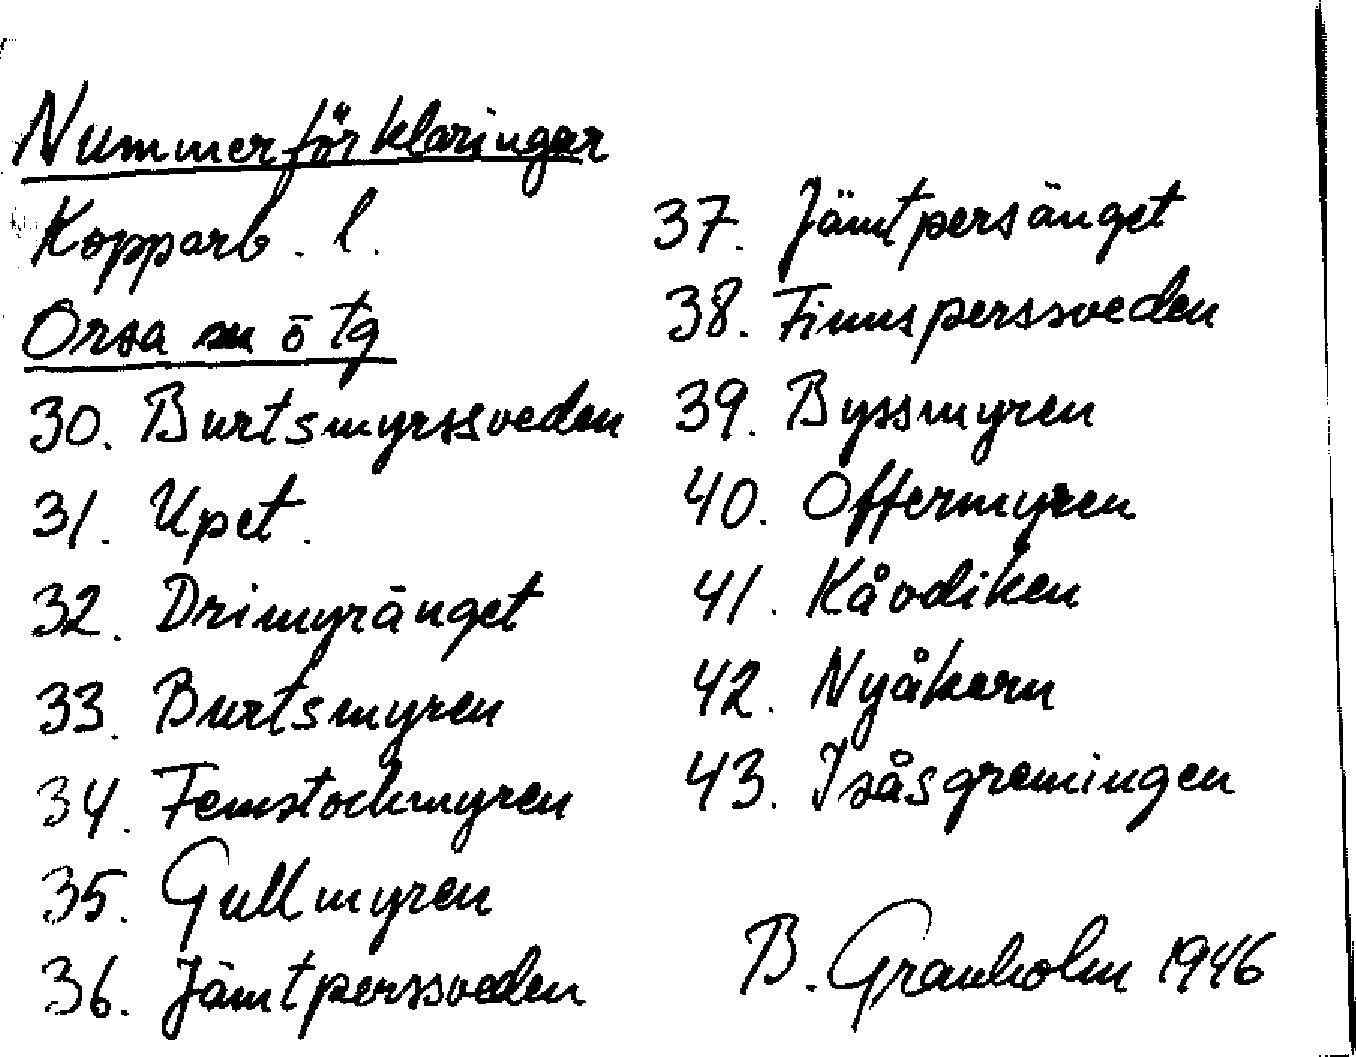 Nummerförklaringar
Kopparb. l.
Orsa sn ö tg
30. Burtsmyrssveden
31. Upet.
32. Drimyränget
33. Burtsmyren
34. Femstockmyren
35. Gullmyren
36. Jämtperssveden
37. Jämtpersänget
38. Finnsperssveden
39. Byssmyren
40. Offermyren
41. Kåvdiken
42. Nyåkern
43. Isåsgreningen
B. Granholm 1946